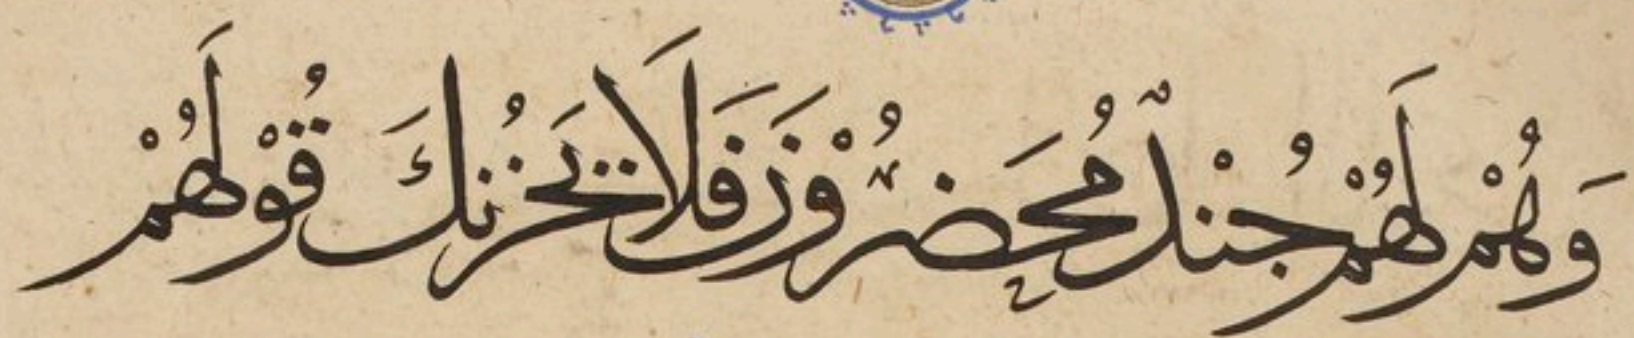 وَهُمْ لَهُمْ جُنْدٌ مُحَضَرُوْنَ فَلَا يَحْزُنكَ قُوْلَهُمْ